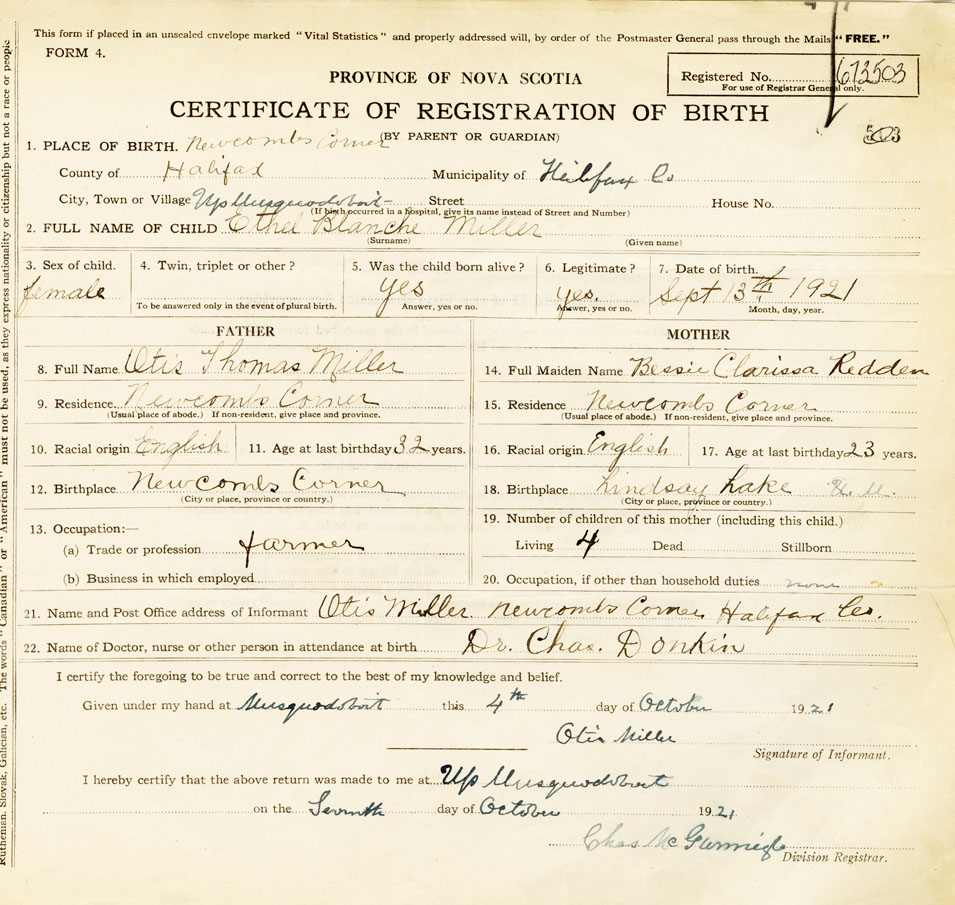 This form if placed in an unsealed envelope marked "Vital Statistics" and properly addressed will, by order of the Postmaster General pass through the Mails "FREE."
FORM 4.
PROVINCE OF NOVA SCOTIA
Registered No. 673503
For use of Registrar General only.
CERTIFICATE OF REGISTRATION OF BIRTH
(BY PARENT OR GUARDIAN)
503
1. PLACE OF BIRTH. Newcombs Corner
County of Halifax Municipality of Halifax Co
City, Town or Village Up Musquodoboit Street House No.
(If birth occurred in a hospital, give its name instead of Street and Number)
2. FULL NAME OF CHILD Ethel Blanche Miller
(Surname) (Given name)
3. Sex of child. 4. Twin, triplet or other? 5. Was the child born alive? 6. Legitimate? 7. Date of birth.
female yes yes. Sept 13th 1921
To be answered only in the event of plural birth. Answer, yes or no. Answer, yes or no. Month, day, year.
FATHER
8. Full Name Otis Thomas Miller
9. Residence. Newcombs Corner
(Usual place of abode.) If non-resident, give place and province.
10. Racial origin English 11. Age at last birthday 32 years.
12. Birthplace Newcombs Corner
(City or place, province or country.)
13. Occupation:—
(a) Trade or profession farmer
(b) Business in which employed
MOTHER
14. Full Maiden Name Bessie Clarissa Redden
15. Residence Newcombs Corner
(Usual place of abode.) If non-resident, give place and province.
16. Racial origin English 17. Age at last birthday 23 years.
18. Birthplace Lindsay Lake
(City or place, province or country.)
19. Number of children of this mother (including this child.)
Living 4 Dead Stillborn
20. Occupation, if other than household duties none
21. Name and Post Office address of Informant Otis Miller Newcombs Corner Halifax Co.
22. Name of Doctor, nurse or other person in attendance at birth Dr. Chas. Donkin
I certify the foregoing to be true and correct to the best of my knowledge and belief.
Given under my hand at Musquodoboit this 4th day of October 1921
Otis Miller
Signature of Informant.
I hereby certify that the above return was made to me at Up Musquodoboit
on the Seventh day of October 1921
Chas Mc
Division Registrar.
Ruthenian, Slovak, Galician, etc. The words "Canadian" or "American" must not be used, as they express nationality or citizenship but not a race or people